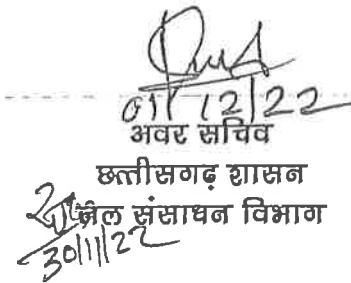 01/12/22
अवर सचिव
छत्तीसगढ़ शासन
जल संसाधन विभाग
30/11/22